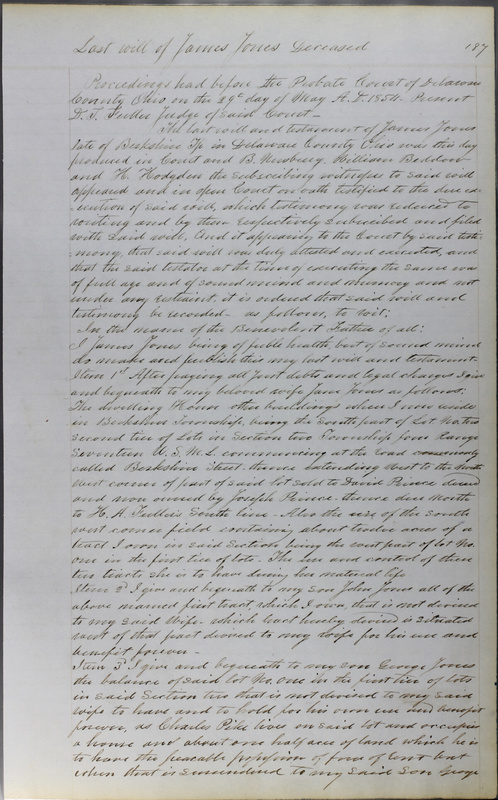 Last will of James Jones Deceased 187
Proceedings had before the Probate Court of Delaware
County Ohio on the 29th day of May A.D. 1854. Present
D. T. Fuller Judge of said Court
The last will and testament of James Jones
late of Berkshire Tp in Delaware County Ohio was this day
produced in Court and B. Newbury William Beddow
and H. Hodgden the subscribing witnesses to said will
appeared and in open Court on oath testified to the due ex-
-ecution of said will, which testimony was reduced to
writing and by them respectively subscribed and filed
with said will, And it appearing to the Court by said testi-
-mony, that said will was duly attested and executed, and
that the said testator at the time of executing the same was
of full age and of sound mind and memory and not
under any restraint, it is ordered that said will and
testimony be recorded - as follows, to wit;
In the name of the Benevolent Father of all;
I James Jones being of feeble health, but of sound mind
do make and publish this my last will and testament.
Item 1st After paying all just debts and legal charges I give
and bequeath to my beloved wife Jane Jones as follows;
The dwelling House other buildings where I now reside
in Berkshire Township, being the South part of Lot No. two
second tier of Lots in Section two Township four Range
Seventeen U. S. M. L. commencing at the road commonly
called Berkshire Street thence extending West to the North
West corner of part of said lot sold to David Prince
and now owned by Joseph Prince thence due North
to H. A. Fullers South line - Also the use of the South
west corner field containing about twelve acres of a
tract I own in said Section being the part of lot No.
one in the first tier of lots - The use and control of these
two tracts she is to have during her natural life
Item 2d I give and bequeath to my son John Jones all of the
above named first tract, which I own, that is not devised
to my said Wife - which tract hereby devised is situated
west of that part devised to my wife for his use and
benefit forever -
Item 3d I give and bequeath to my son George Jones
the balance of said lot No. one in the first tier of lots
in said Section two that is not devised to my said
wife to have and to hold for his own use and benefit
forever, as Charles Pike lives on said lot and occupies
a house and about one half acre of land which he is
to have the peacable possession of free of rent but
when that is surrendered to my said Son George